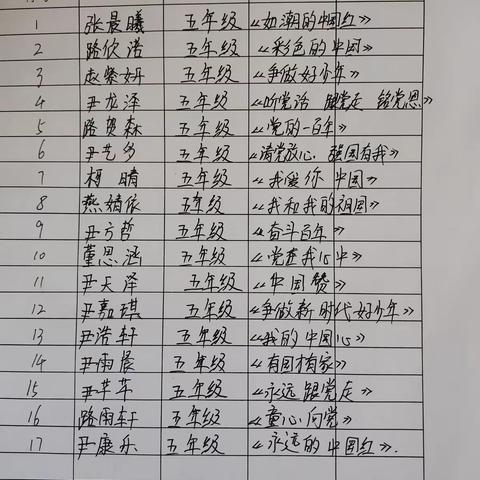 1 张晨曦 五年级 《如潮的中国红》
2 路依诺 五年级 《彩色的中国》
3 赵紫妍 五年级 《争做好少年》
4 尹龙泽 五年级 《听党话 跟党走 铭党恩》
5 路贺森 五年级 《党的一百年》
6 尹艺多 五年级 《请党放心 强国有我》
7 柯晴 五年级 《我爱你 中国》
8 燕婧依 五年级 《我和我的祖国》
9 尹方哲 五年级 《奋斗百年》
10 董思涵 五年级 《党在我心中》
11 尹天泽 五年级 《中国赞》
12 尹嘉琪 五年级 《争做新时代好少年》
13 尹浩轩 五年级 《我的中国心》
14 尹雨晨 五年级 《有国才有家》
15 尹苹苹 五年级 《永远跟党走》
16 路雨轩 五年级 《童心向党》
17 尹康乐 五年级 《永远的中国红》.